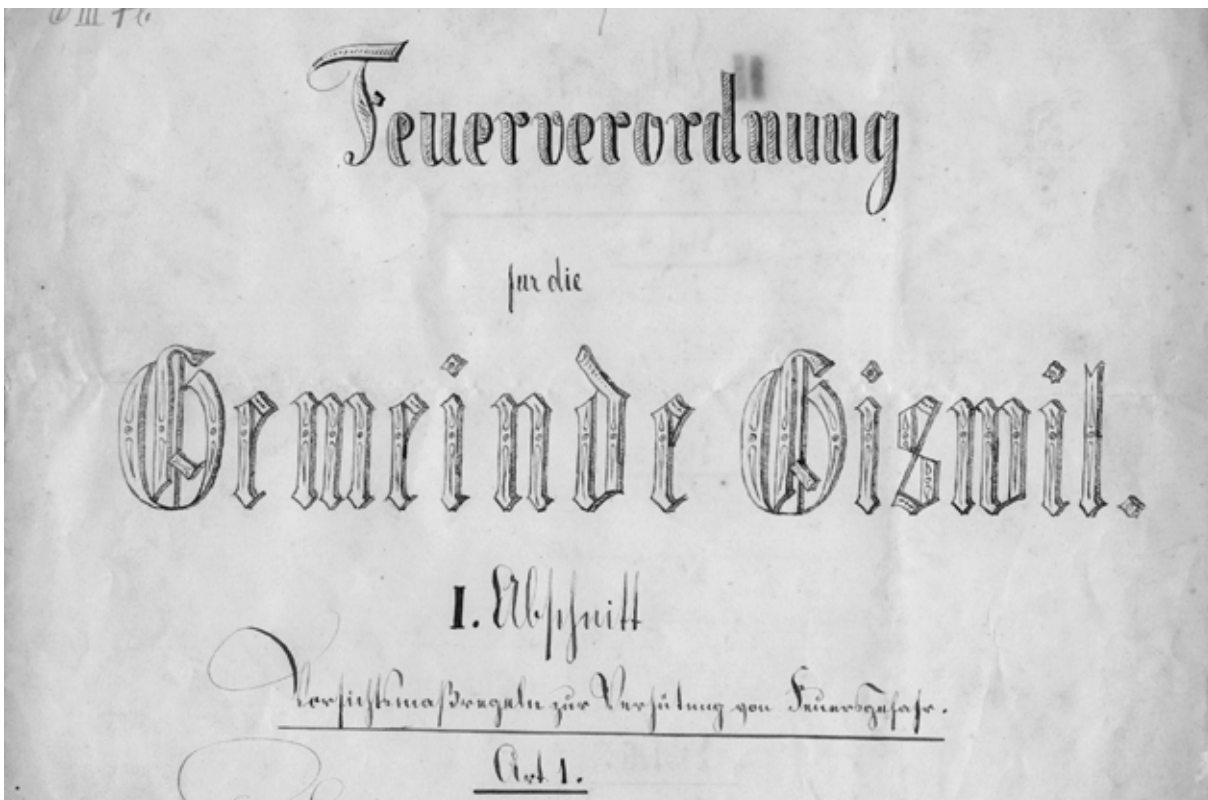 Feuerverordnung
für die
Gemeinde Giswil.
I. Abschnitt
Vorsichtsmaßregeln zur Verhütung von Feuersgefahr.
Art. 1.